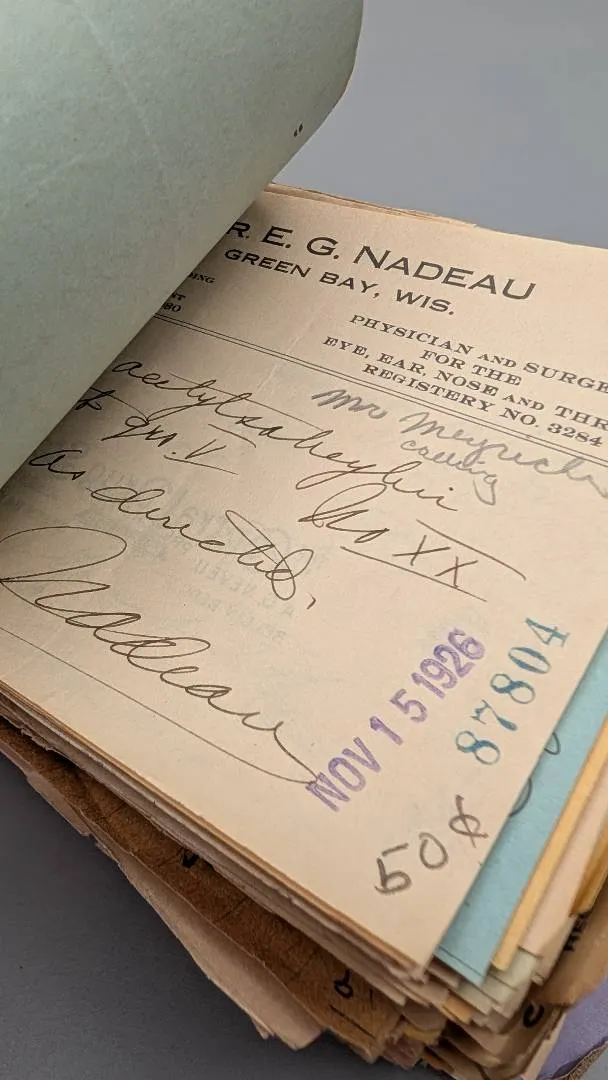 R. E. G. NADEAU
GREEN BAY, WIS.
PHYSICIAN AND SURGE
FOR THE
EYE, EAR, NOSE AND THR
REGISTERY NO. 3284
80
Mr
calling
acetylsalicylic
gr. V No XX
as directed,
Nadeau
NOV 15 1926
87804
50¢